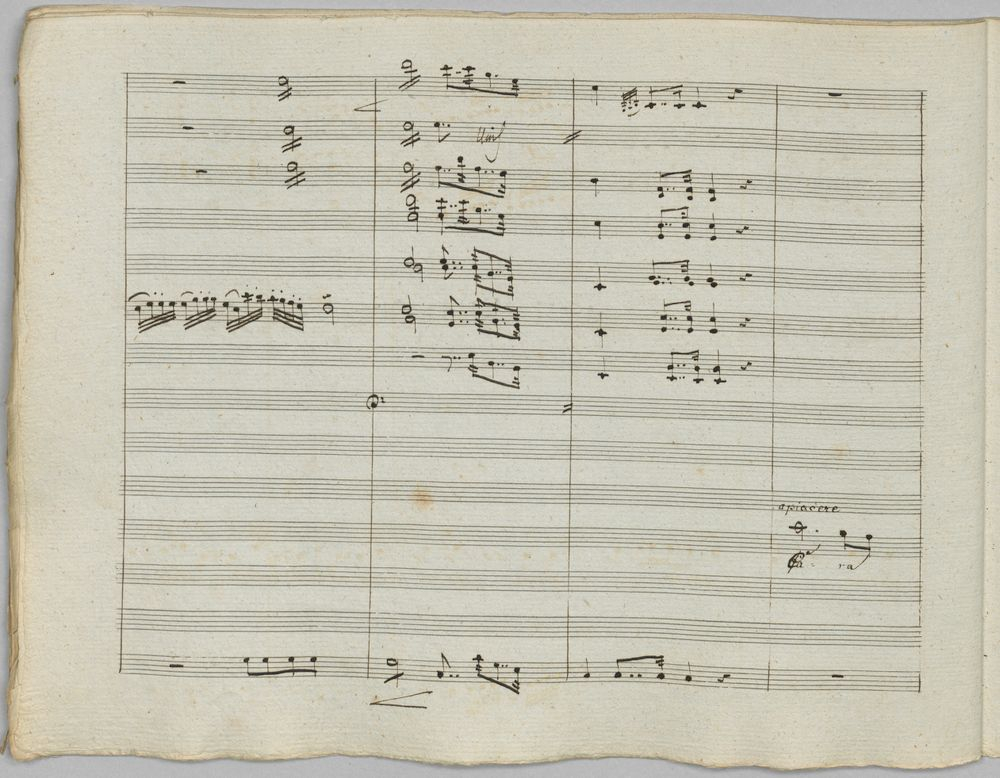 Unis
a piacere
Ca - ra